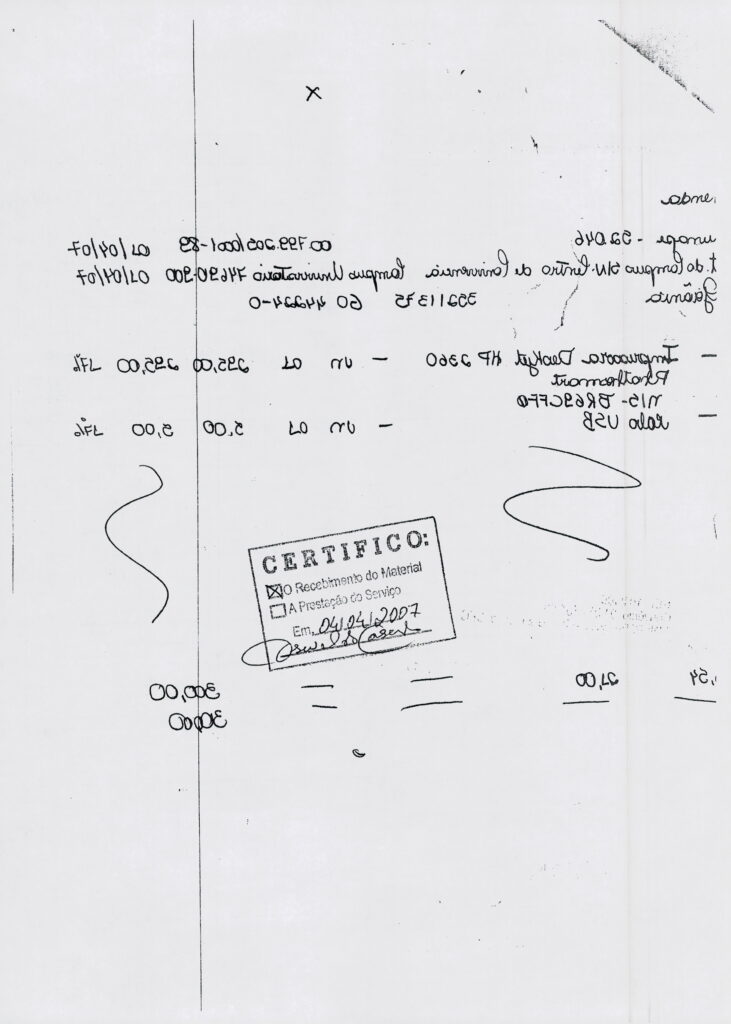 X
enda
unape - 52046 00.799.205/0001-89 02/04/07
t. do Campus S/N. Centro de Convivência Campus Universitário 74690-900 02/04/07
Goiânia 35211375 GO 44224-0
— Impressora Deskjet HP 2360 — un 01 295,00 295,00 17%
Photosmart
N/S - BR69CFF0
— Cabo USB — un 01 5,00 5,00 17%
CERTIFICO:
X O Recebimento do Material
A Prestação do Serviço
Em, 04/04/2007
51,00 — — 300,00
— — — — 300,00